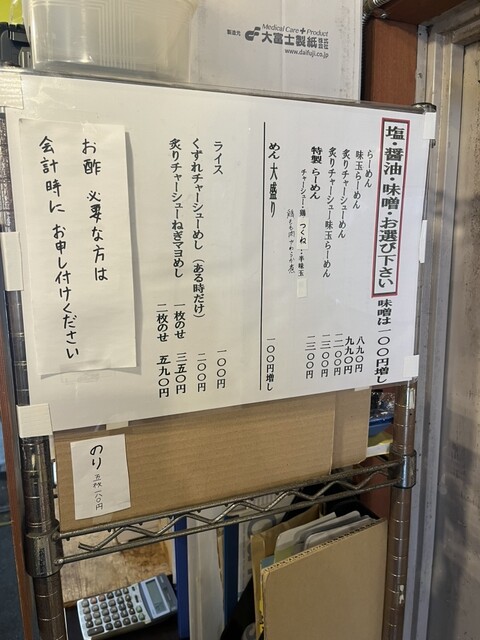 Medical Care + Product
製造元 大富士製紙 株式会社
www.daifuji.co.jp
塩・醤油・味噌・お選び下さい
味噌は一〇〇円増し
らーめん 八九〇円
味玉らーめん 九九〇円
炙りチャーシューめん 一二〇〇円
炙りチャーシュー味玉らーめん 一三〇〇円
特製 らーめん 一三〇〇円
チャーシュー・鶏 つくね・半味玉
鶏もも肉やわらか煮
めん 大盛り 一〇〇円増し
ライス 一〇〇円
くずれチャーシューめし（ある時だけ） 二〇〇円
炙りチャーシューねぎマヨめし 一枚のせ 三五〇円
二枚のせ 五九〇円
お酢 必要な方は
会計時に お申し付けください
のり 五枚 一八〇円